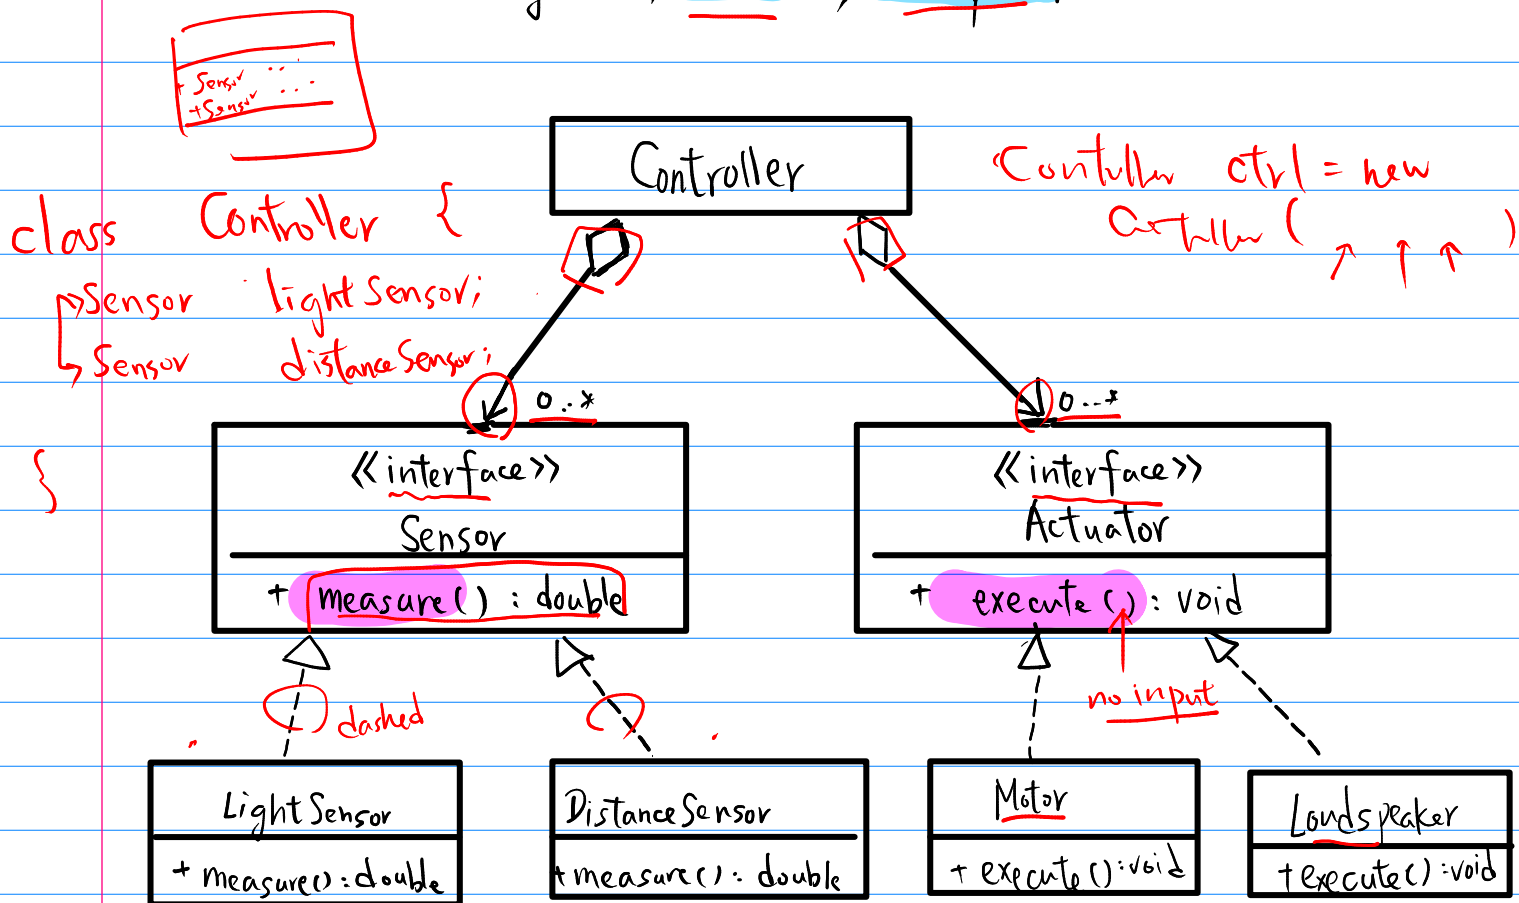 + Sensor
+ Sensor
Controller
Controller ctrl = new
Controller ( )
class Controller {
Sensor lightSensor;
Sensor distanceSensor;
}
0..*
0...*
<<interface>>
Sensor
+ measure() : double
<<interface>>
Actuator
+ execute() : void
dashed
no input
LightSensor
+ measure() : double
DistanceSensor
+ measure() : double
Motor
+ execute() : void
Loudspeaker
+ execute() : void